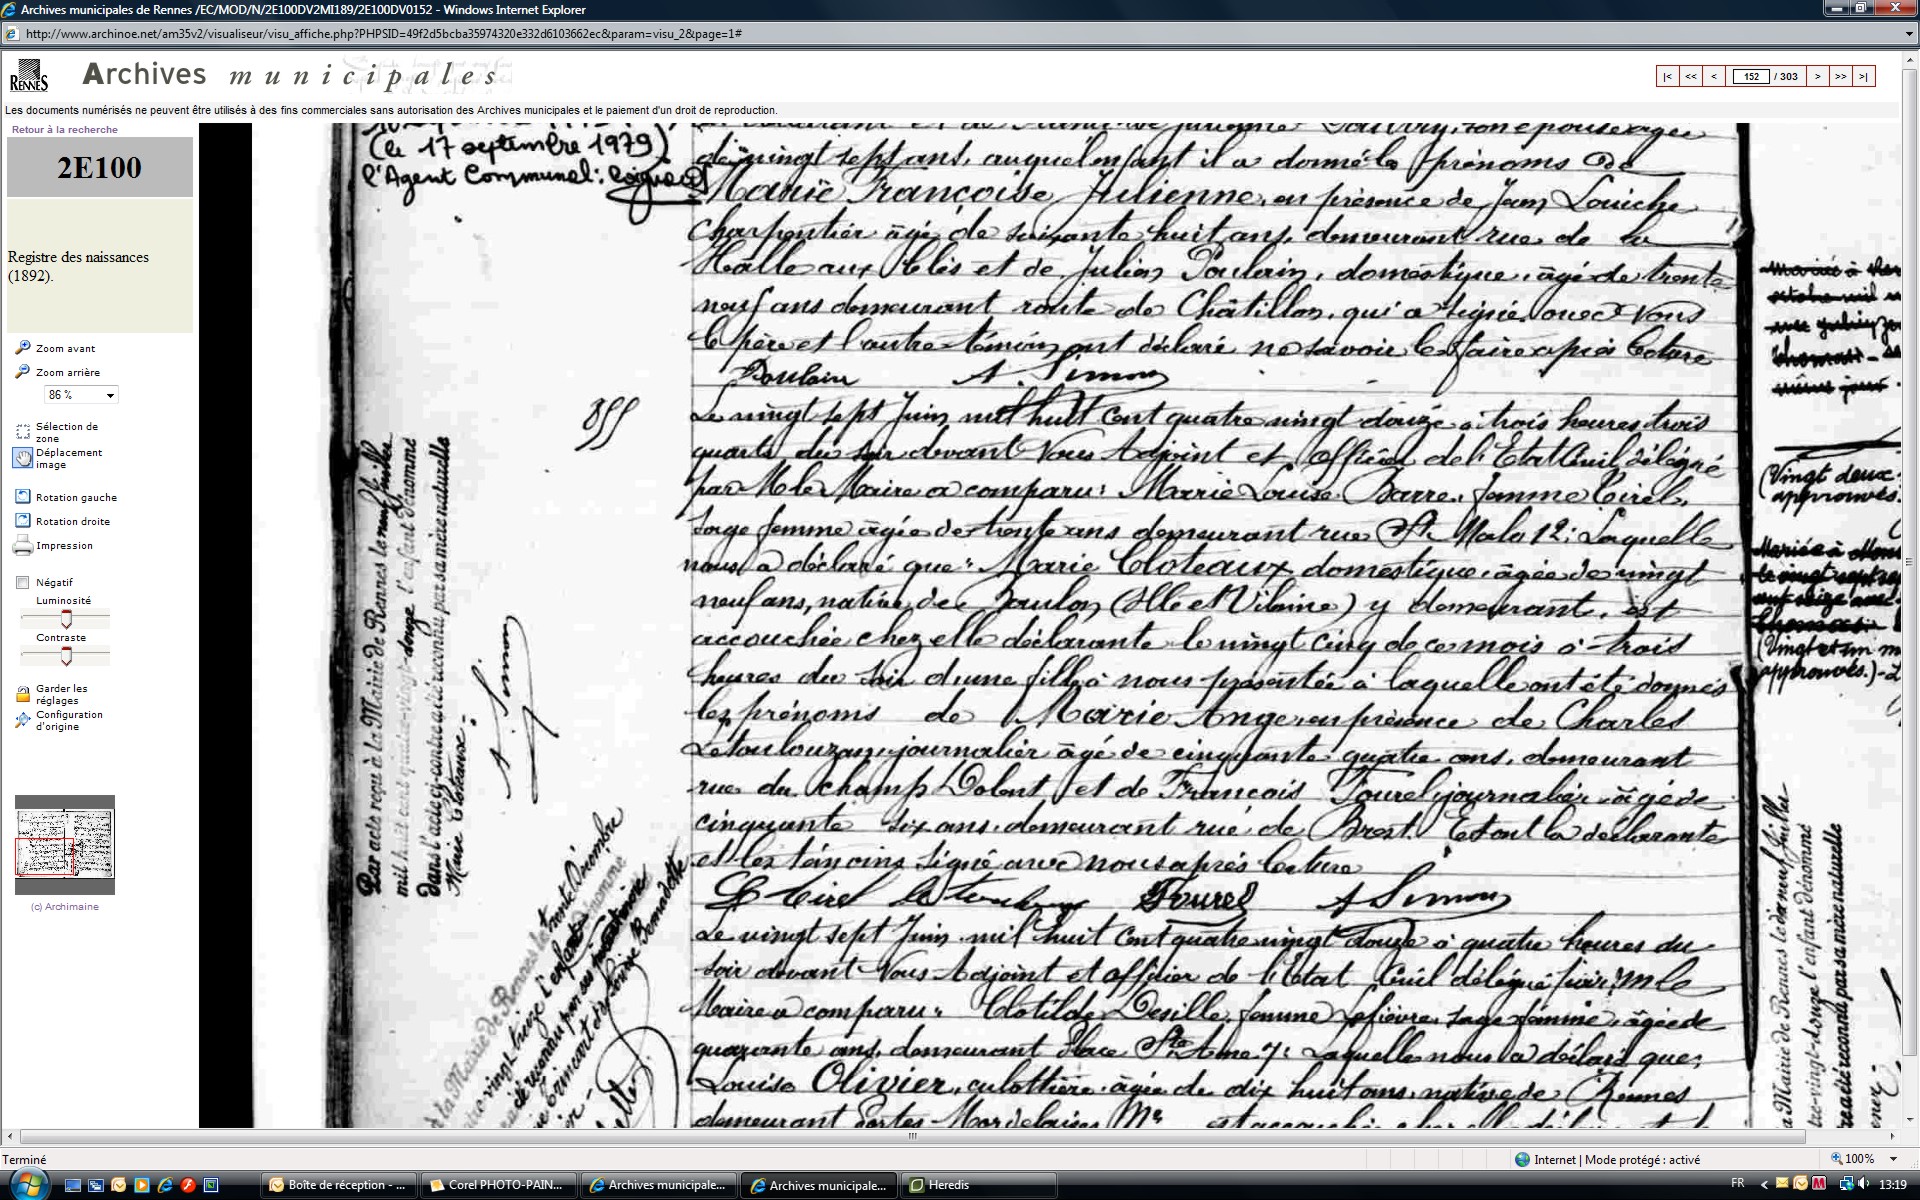 Archives municipales de Rennes /EC/MOD/N/2E100DV2MI189/2E100DV0152 - Windows Internet Explorer
http://www.archinoe.net/am35v2/visualiseur/visu_affiche.php?PHPSID=49f2d5bcba35974320e332d6103662ec&param=visu_2&page=1#
RENNES
Archives municipales
|< << < 152 / 303 > >> >|
Les documents numérisés ne peuvent être utilisés à des fins commerciales sans autorisation des Archives municipales et le paiement d'un droit de reproduction.
Retour à la recherche
2E100
Registre des naissances
(1892).
Zoom avant
Zoom arrière
86 %
Sélection de
zone
Déplacement
image
Rotation gauche
Rotation droite
Impression
Négatif
Luminosité
Contraste
Garder les
réglages
Configuration
d'origine
(c) Archimaine
(le 17 septembre 1979)
l'Agent Communal:
de vingt sept ans, auquel enfant il a donné les prénoms de
Marie Françoise Julienne, en présence de Jean Louiche
charpentier âgé de soixante huit ans, demeurant rue de la
Halle aux blés et de Julien Poulain, domestique, âgé de trente
neuf ans demeurant route de Châtillon, qui a signé avec Nous
le père et l'autre témoin ont déclaré ne savoir le faire après lecture
Poulain A. Simon
855
Le vingt sept Juin mil huit cent quatre vingt douze à trois heures trois
quarts du soir devant Nous Adjoint et officier de l'Etat Civil délégué
par M le Maire a comparu: Marie Louise Barre, femme Tirel,
sage femme âgée de trente ans demeurant rue St Malo 12; Laquelle
nous a déclaré que: Marie Cloteaux domestique, âgée de vingt
neuf ans, native de Baulon (Ille et Vilaine) y demeurant, est
accouchée chez elle déclarante le vingt cinq de ce mois à trois
heures du soir d'une fille à nous présentée à laquelle ont été donnés
les prénoms de Marie Ange, en présence de Charles
Letoulouzan, journalier âgé de cinquante quatre ans, demeurant
rue du champ Dolent et de François Tourel, journalier âgé de
cinquante six ans, demeurant rue de Brest. Et ont la déclarante
et les témoins signé avec nous après lecture
Tirel Tourel A Simon
Le vingt sept Juin mil huit cent quatre vingt douze à quatre heures du
soir devant Nous Adjoint et officier de l'Etat Civil délégué par M le
Maire a comparu: Clotilde Desille, femme Lefièvre, sage femme, âgée de
quarante ans, demeurant Place Ste Anne 7; Laquelle nous a déclaré que:
Louise Olivier, culottière âgée de dix huit ans, native de Rennes
demeurant Portes Mordelaises
Par acte reçu à la Mairie de Rennes le neuf Juillet
mil huit cent quatre-vingt-douze l'enfant dénommé
dans l'acte ci-contre a été reconnu par sa mère naturelle
Marie Cloteaux
A. Simon
(Vingt deux
approuvés.
(Vingt et un m
approuvés.)
a Mairie de Rennes le
tre-vingt-douze l'enfant dénommé
re a été reconnu par sa mère naturelle
Terminé
Internet | Mode protégé : activé
100%
Boîte de réception - ...
Corel PHOTO-PAIN...
Archives municipale...
Archives municipale...
Heredis
FR
13:19